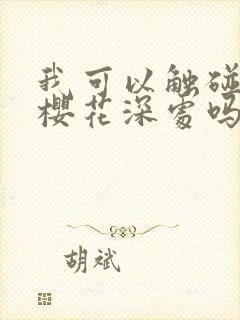 我可以触碰
樱花深处吗
胡斌